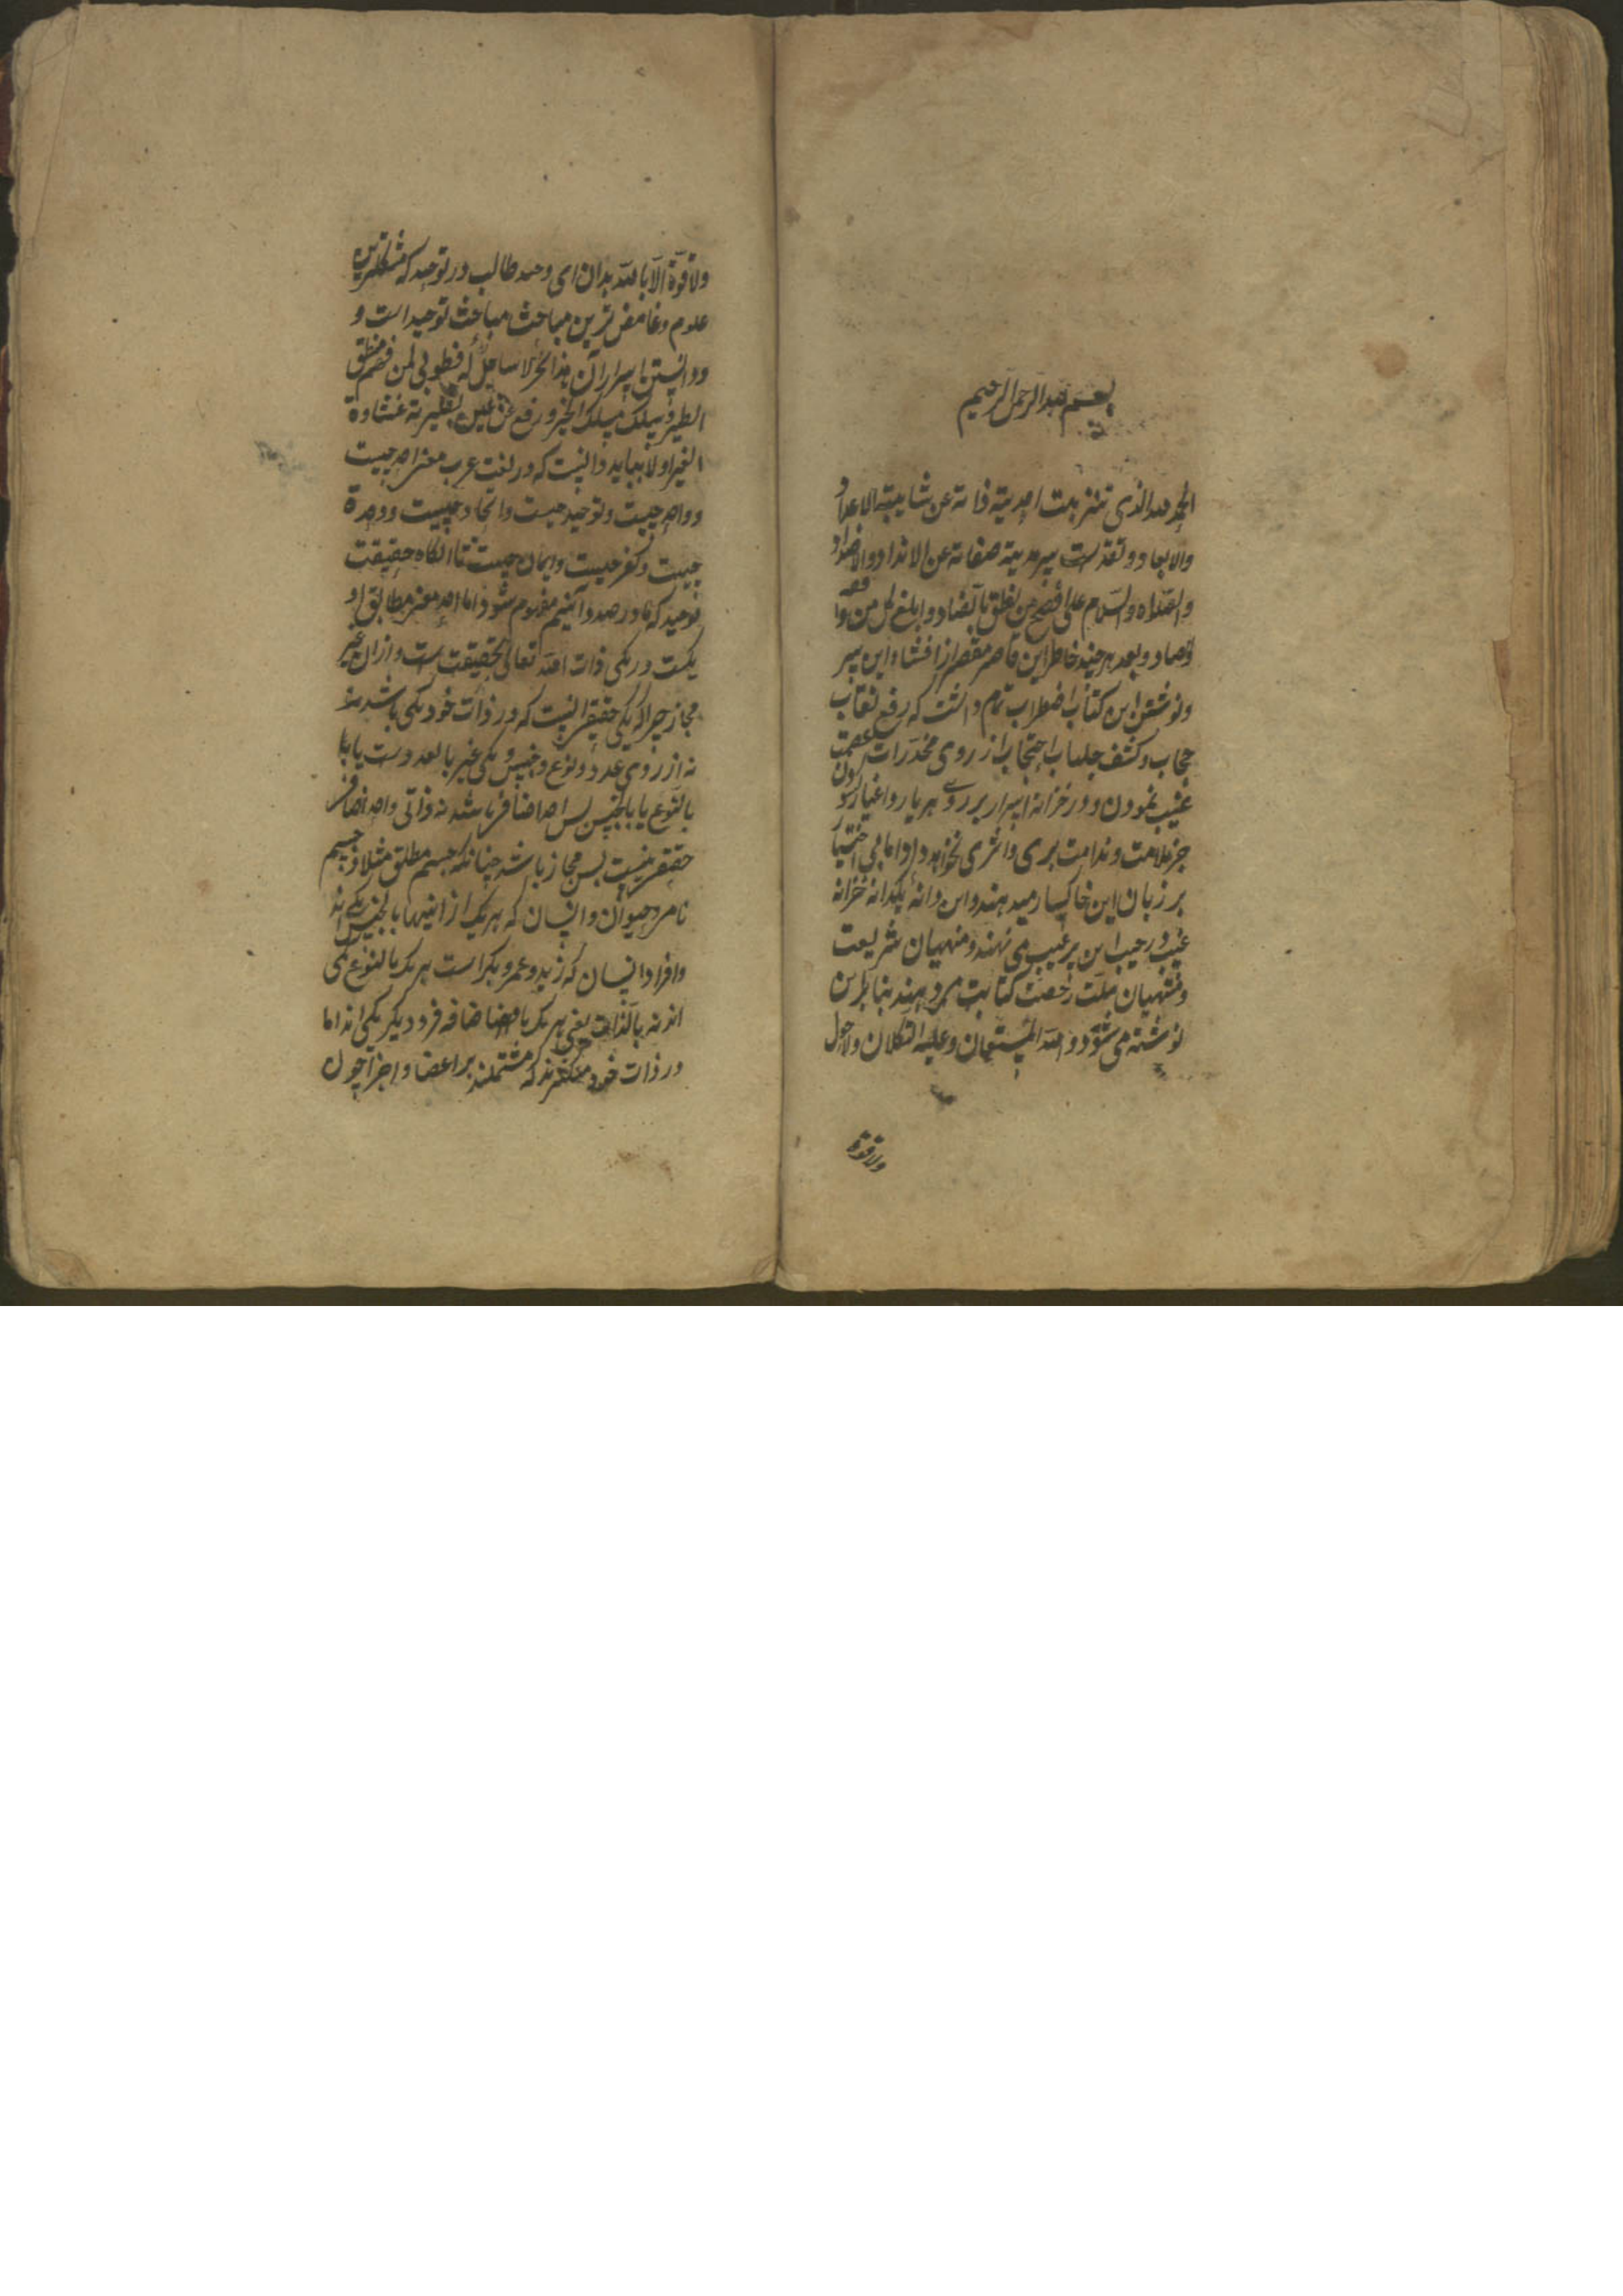 بسم الله الرحمن الرحیم
الحمد لله الذی تنزهت احدیته ذاته عن شایبته الاعداد
والابعاد و تقدست سرمدیته صفاته عن الانداد والاضداد
والصلاه والسلام علی افصح من نطق بالضاد و ابلغ کل من
وصاد و بعد هر چند خاطر این قاصر مقصر از افشاء این سر
و نوشتن این کتاب اضطراب تمام داشت که رفع نقاب
حجاب و کشف جلباب احتجاب از روی مخدرات عصمت
غیب نمودن و در خزانه اسرار بر روی هر یار و اغیار
جز ملامت و ندامت بری و اثری نخواهد داد اما بی اختیار
بر زبان این خاکسار میدهند و این دانه یکدانه خزانه
غیب در جیب این پر عیب می نهند و منهیان شریعت
و منتهیان ملت رخصت کتابت میدهند بنابرین
نوشته می شود و الله المستعان و علیه التکلان ولا حول
ولا قوة
ولا قوة الا بالله بدان ای وحید طالب در توحید که مشکلترین
علوم و غامض ترین مباحث مباحث توحید است و
و دانستن اسرار آن هذا بحر لا ساحل له فطوبی لمن فهم منطق
الطیر و سلک مسلک الخیر و رفع عن عین بصیرته غشاوة
الغیر اولا بباید دانست که در لغت عرب معنی احد چیست
و واحد چیست و توحید چیست و اتحاد چیست و وحدة
چیست و کفر چیست و ایمان چیست تا آنگاه حقیقت
توحید که ما در صدد آنیم مفهوم شود اما احد معنی مطابق او
یکیست در یکی ذات الله تعالی بحقیقت است و از ان غیر
مجاز چرا که یکی حقیقی آنست که در ذات خود یکی باشد
نه از روی عدد و نوع و جنس و یکی غیر بالعدد است یا
بالنوع یا بالجنس پس احد اضافی باشد نه ذاتی واحد اضافی
حقیقی نیست پس مجاز باشد چنانکه جسم مطلق مثلا و جسم
نامی و حیوان و انسان که هر یک از اینها بالجنس یکی اند
و افراد انسان که زید و عمر و بکر است هر یک بالنوع یکی
اند نه بالذات یعنی هر یک باضافه فرد دیگر یکی اند اما
در ذات خود متکثرند که مشتملند بر اعضا و اجزا چون